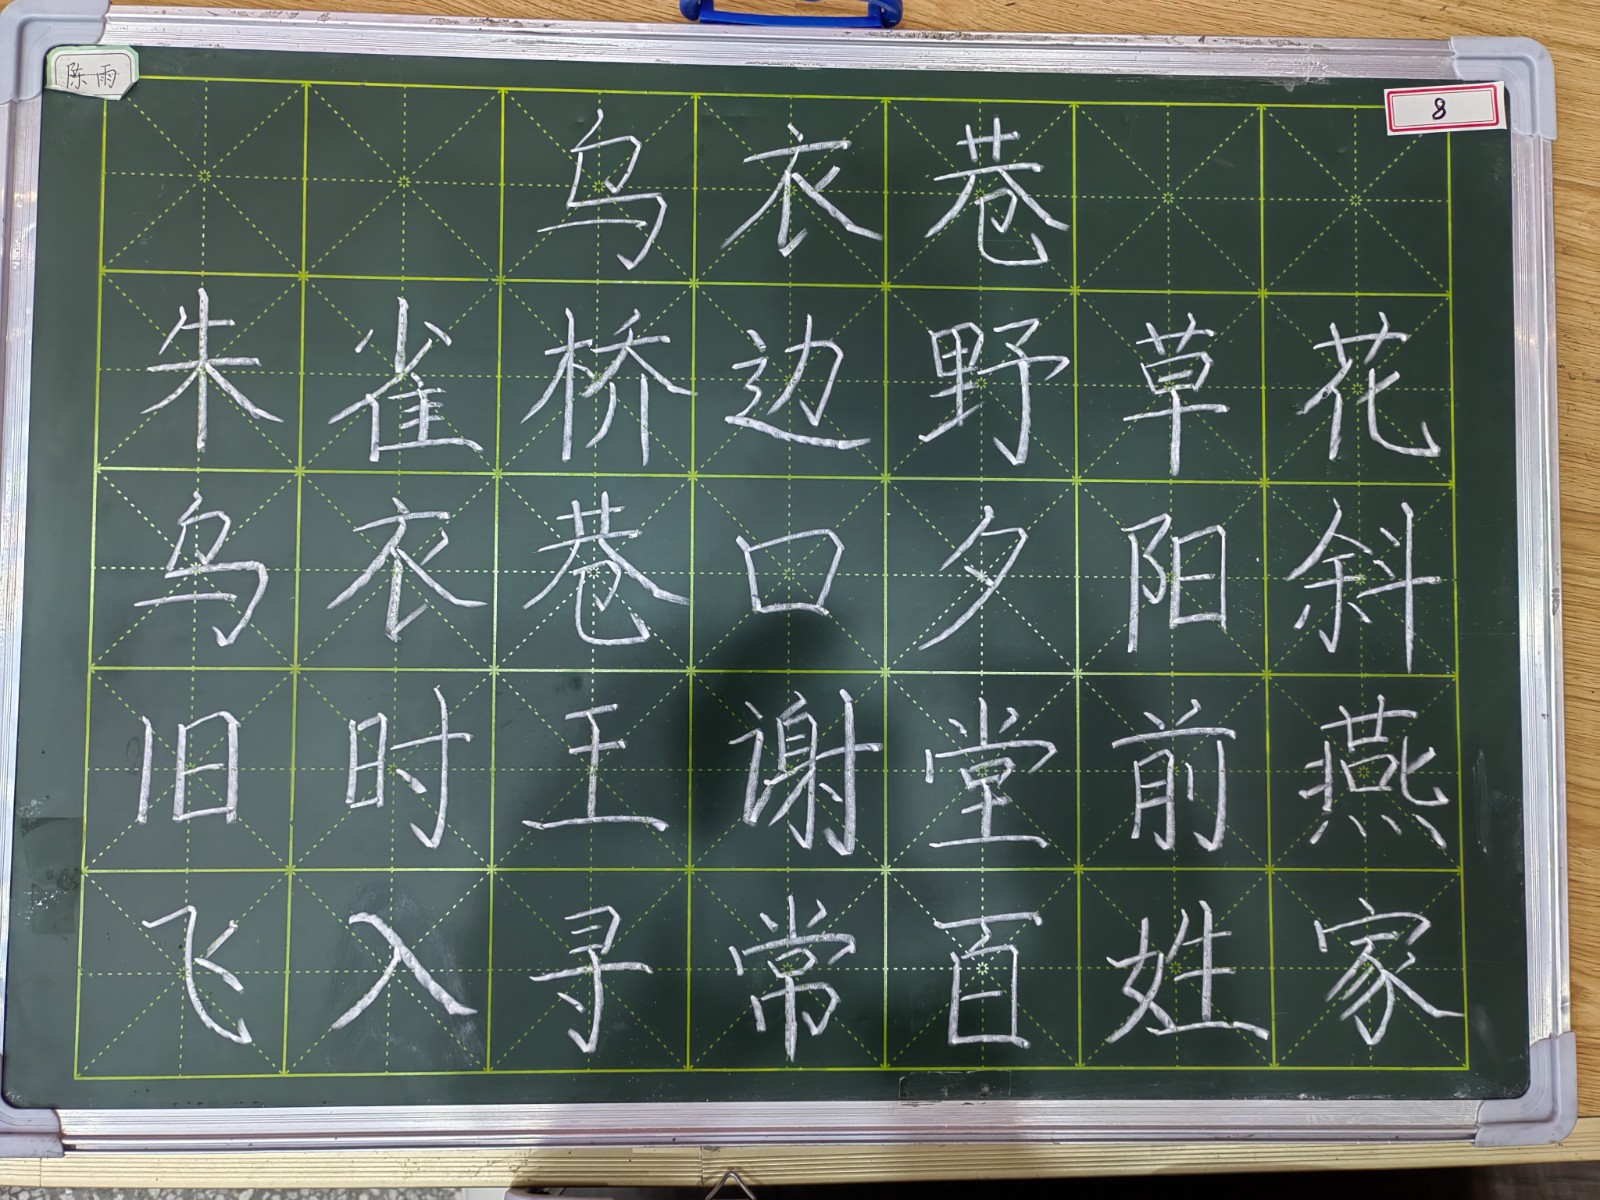 陈雨
8
乌衣巷
朱雀桥边野草花
乌衣巷口夕阳斜
旧时王谢堂前燕
飞入寻常百姓家